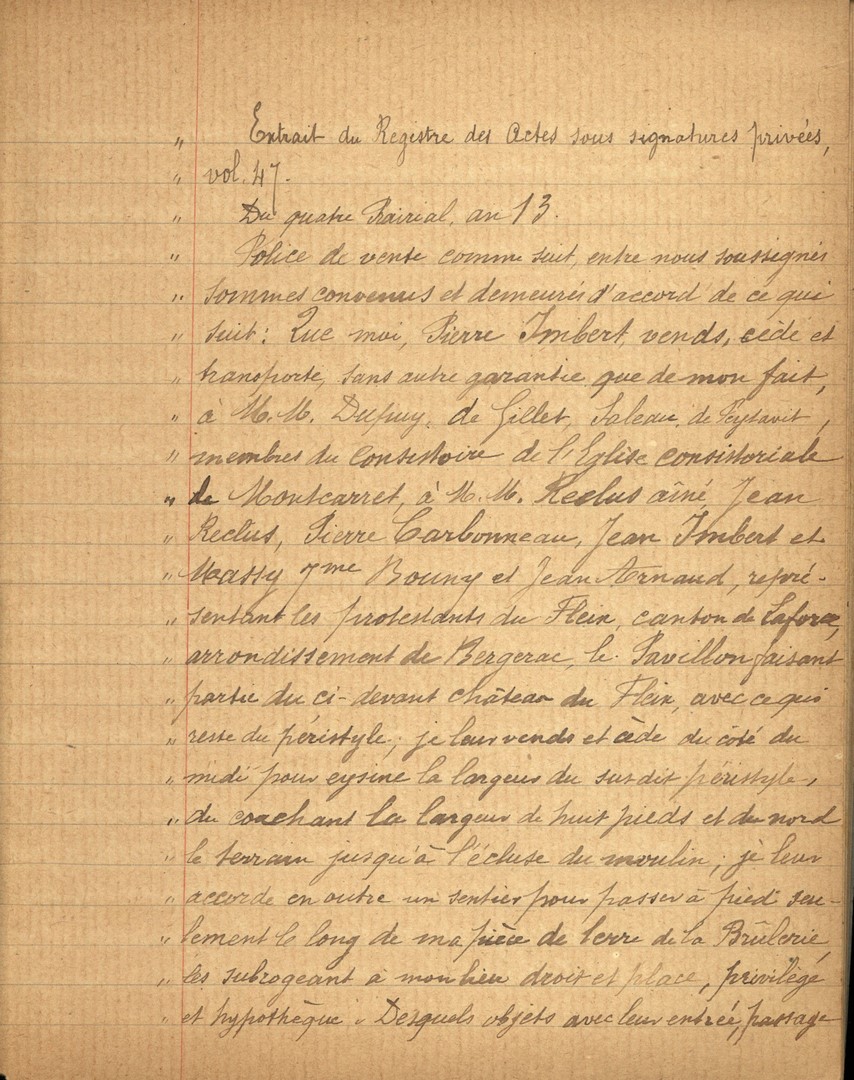 „ Extrait du Registre des Actes sous signatures privées,
„ vol. 47.
„ Du quatre Prairial, an 13.
„ Police de vente comme suit, entre nous soussignés
„ sommes convenus et demeurés d'accord de ce qui
„ suit: Que moi, Pierre Imbert, vends, cède et
„ transporte, sans autre garantie que de mon fait,
„ à M.M. Dupuy, de Gillet, Saleau, de Peytavit,
„ membres du Consistoire de l'Eglise consistoriale
„ de Montcarret, à M.M. Reclus aîné, Jean
„ Reclus, Pierre Carbonneau, Jean Imbert et
„ Massy 7me Bouny et Jean Arnaud, repré-
„ sentant les protestants du Fleix, canton de Laforce,
„ arrondissement de Bergerac, le Pavillon faisant
„ partie du ci-devant château du Fleix, avec ce qui
„ reste du péristyle; je leur vends et cède du côté du
„ midi pour eysine la largeur du susdit péristyle,
„ du couchant la largeur de huit pieds et du nord
„ le terrain jusqu'à l'écluse du moulin; je leur
„ accorde en outre un sentier pour passer à pied seu-
„ lement le long de ma pièce de terre de la Brûlerie,
„ les subrogeant à mon lieu droit et place, privilège
„ et hypothèque. Desquels objets avec leur entrée, passage